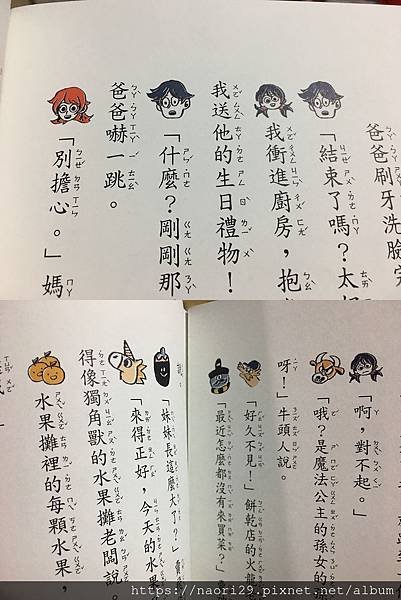 爸爸刷牙洗臉完
「結束了嗎?太
我衝進廚房,抱
我送他的生日禮物!
「什麼?剛剛那
爸爸嚇一跳。
「別擔心。」媽
「啊,對不起。」
「哦?是魔法公主的孫女的
呀!」牛頭人說。
「好久不見!」餅乾店的火龍
「最近怎麼都沒有來買菜?」
「妹妹長這麼大了?」賣
「來得正好,今天的水果
得像獨角獸的水果攤老闆說。
水果攤裡的每顆水果,
https://naori29.pixnet.net/album